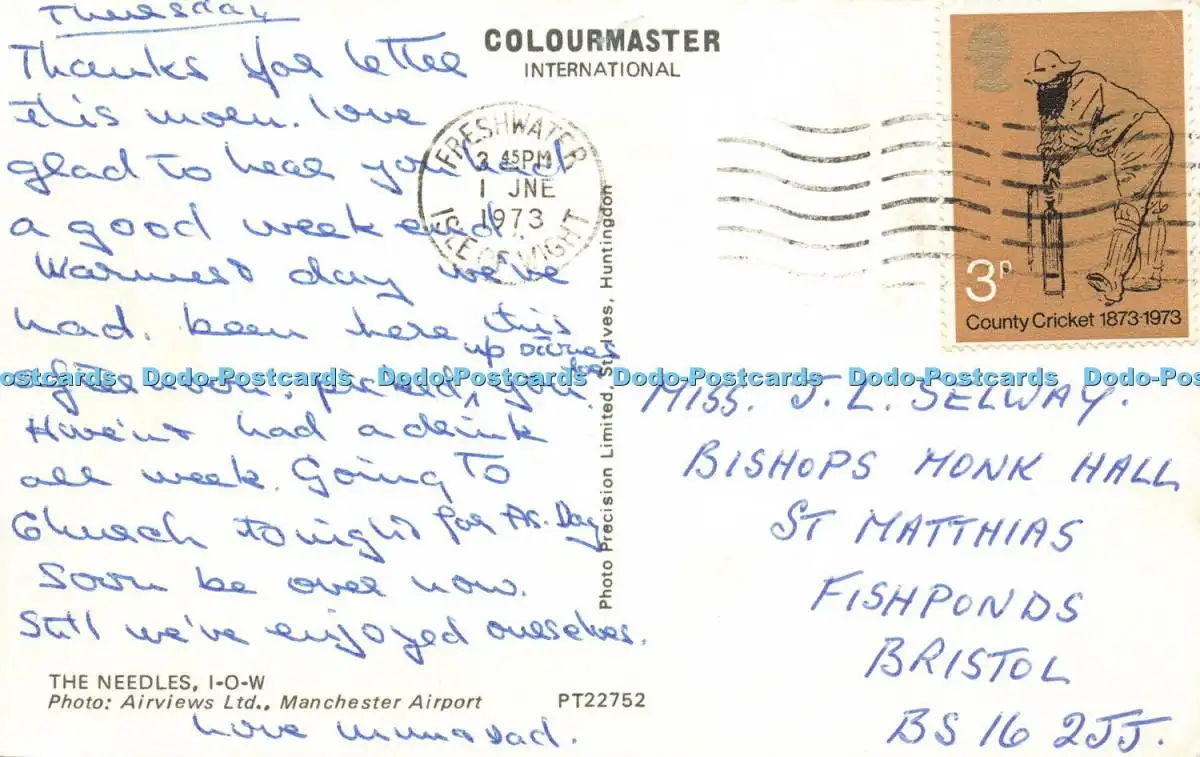 Thursday
Thanks for letter
this morn. love
glad to hear you had
a good week end.
Warmest day we've
had. been here this
afternoon, picked up stones for you.
Haven't had a drink
all week. Going To
Church tonight for As. Day
Soon be over now.
Still we've enjoyed ourselves.
Love mum & dad.
COLOURMASTER
INTERNATIONAL
FRESHWATER
2 45PM
1 JNE
1973
ISLE OF WIGHT
Photo Precision Limited, St. Ives, Huntingdon
3P
County Cricket 1873-1973
MISS. J. L. SELWAY.
BISHOPS MONK HALL
ST MATTHIAS
FISHPONDS
BRISTOL
BS 16 2JJ.
THE NEEDLES, I-O-W
Photo: Airviews Ltd., Manchester Airport PT22752
Postcards Dodo-Postcards Dodo-Postcards Dodo-Postcards Dodo-Postcards Dodo-Pos